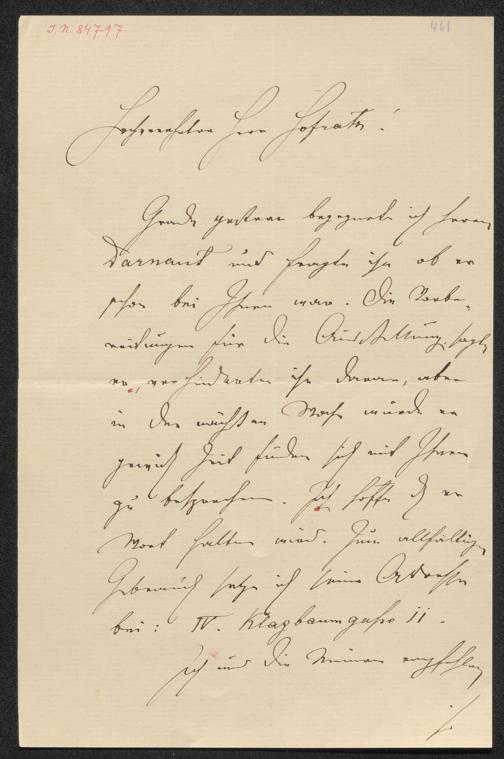 J.N. 84797
461
Hochverehrter Herr Hofrath!
Grade gestern begegnete ich Herrn
Darnaut und fragte ihn ob er
schon bei Ihnen war. Die Vorbe-
reitungen für die Ausstellung, sagte
er, verhinderten ihn daran, aber
in der nächsten Woche würde er
gewiß Zeit finden sich mit Ihnen
zu besprechen. Ich hoffe daß er
Wort halten wird. Zum allfälligen
Gebrauch setze ich seine Adresse
bei: IV. Klagbaumgasse 11.
Ich und die Meinen empfehlen